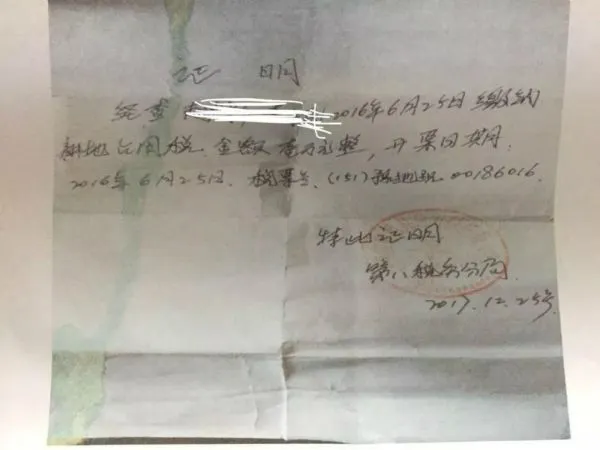 证 明
经查 2016年6月25日缴纳
耕地占用税 金额 万元整,开票日期
2016年6月25日. 税票号 (151) 00186016.
特此证明
第八税务分局.
2017.12.25号